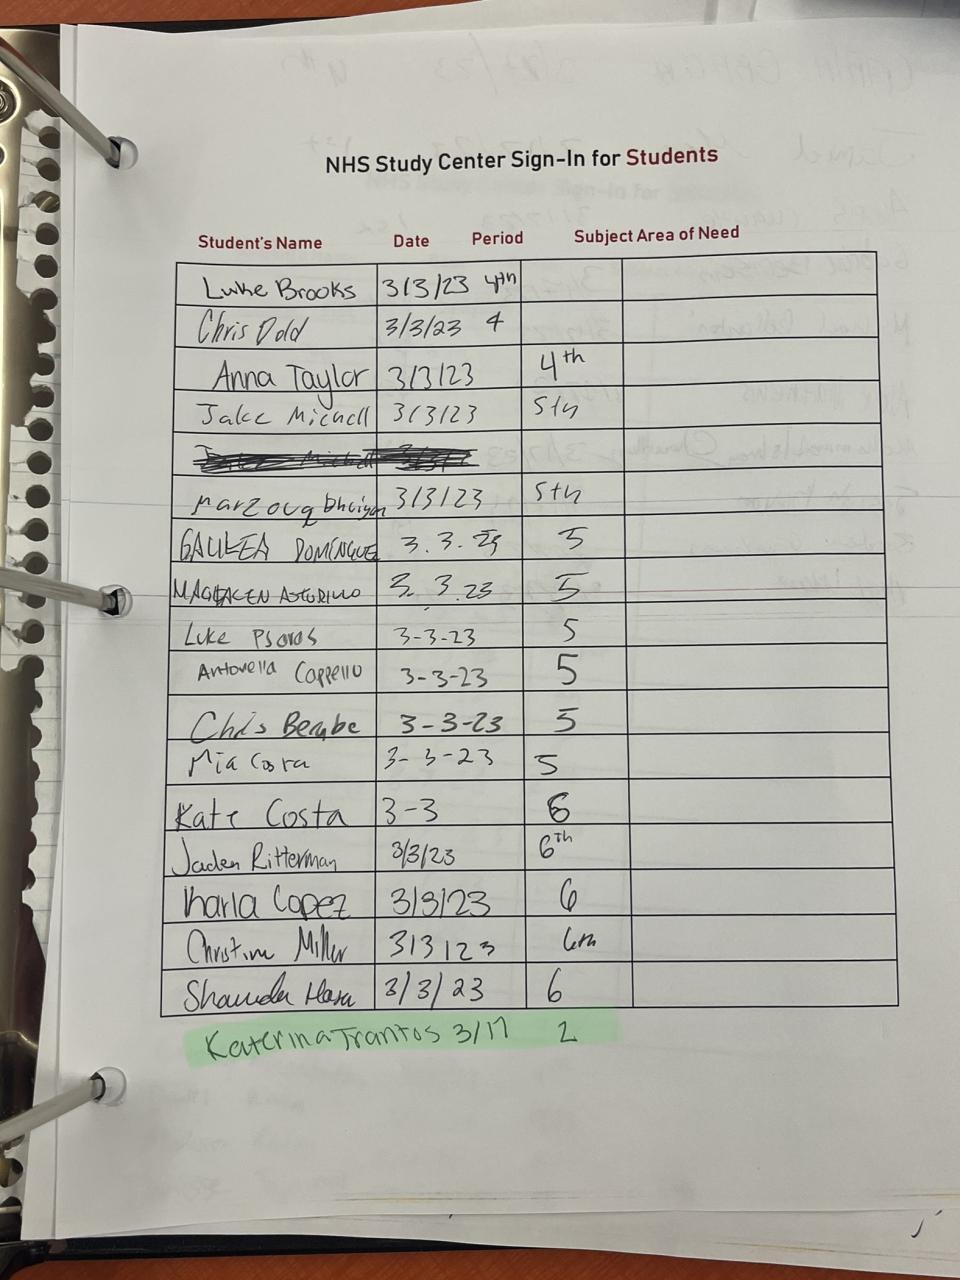 NHS Study Center Sign-In for Students
Student's Name Date Period Subject Area of Need
Luke Brooks 3/3/23 4th
Chris Dold 3/3/23 4
Anna Taylor 3/3/23 4th
Jake Michell 3/3/23 5th
Marzouq Bhuiyan 3/3/23 5th
GALILEA DOMINGUEZ 3.3.23 5
3.3.23 5
Luke Psaros 3-3-23 5
Antonella Coppello 3-3-23 5
Chris Berube 3-3-23 5
Mia Cosra 3-3-23 5
Kate Costa 3-3 6
Jaden Ritterman 3/3/23 6Th
Karla Lopez 3/3/23 6
Christine Miller 3/3/23 6th
3/3/23 6
Katerina Trantos 3/17 2